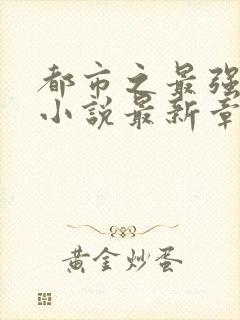 都市之最强
小説最新章
黄金炒蛋